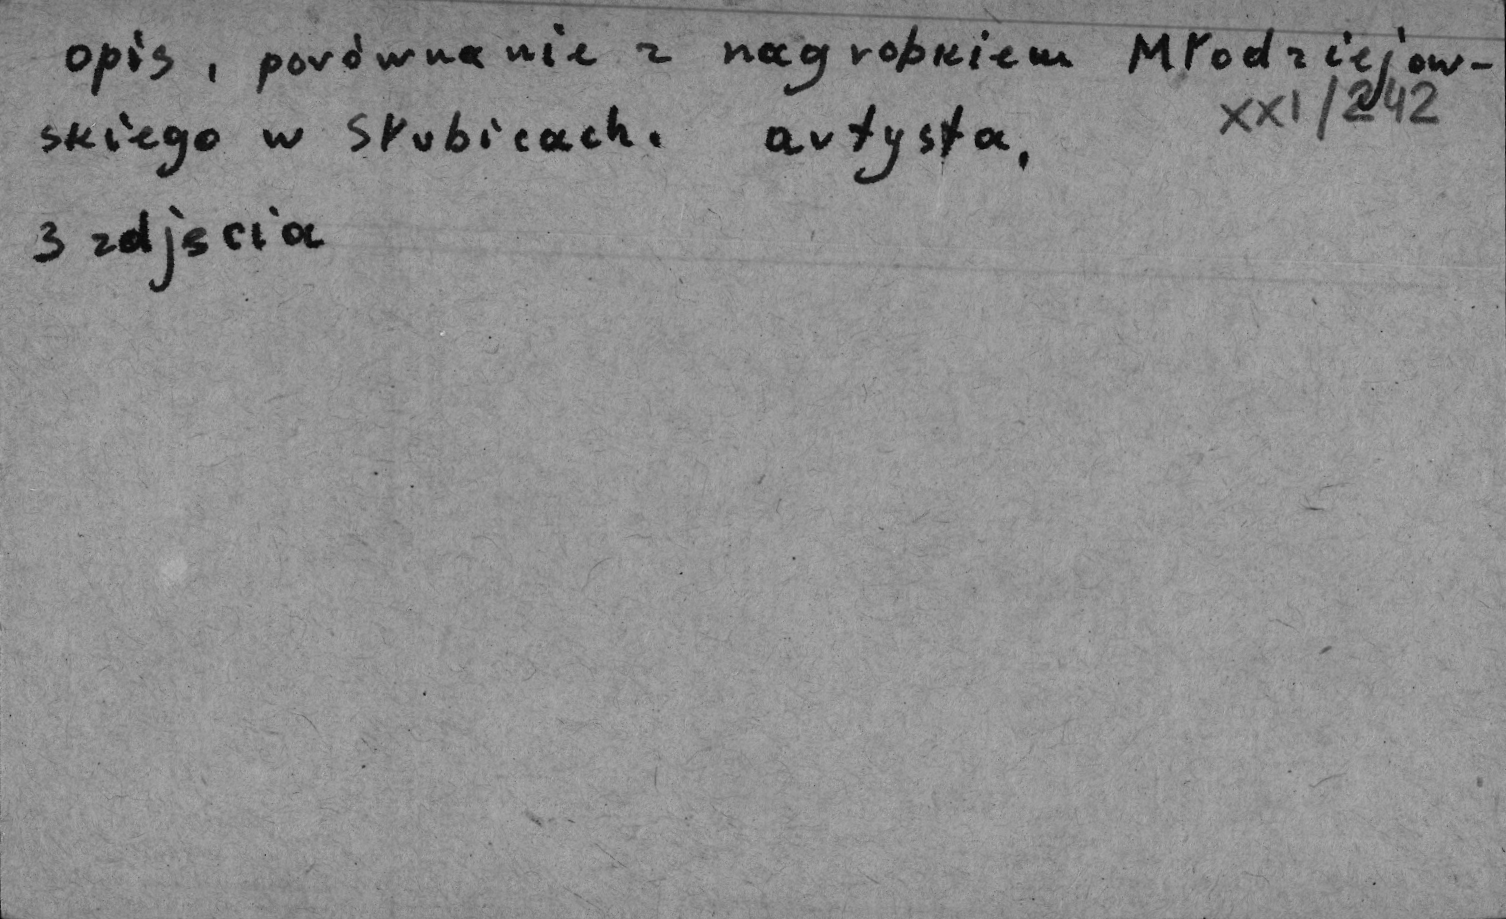 opis, porównanie z nagrobkiem Młodziejow-
skiego w Słubicach. artysta,
XXI/242
3 zdjęcia